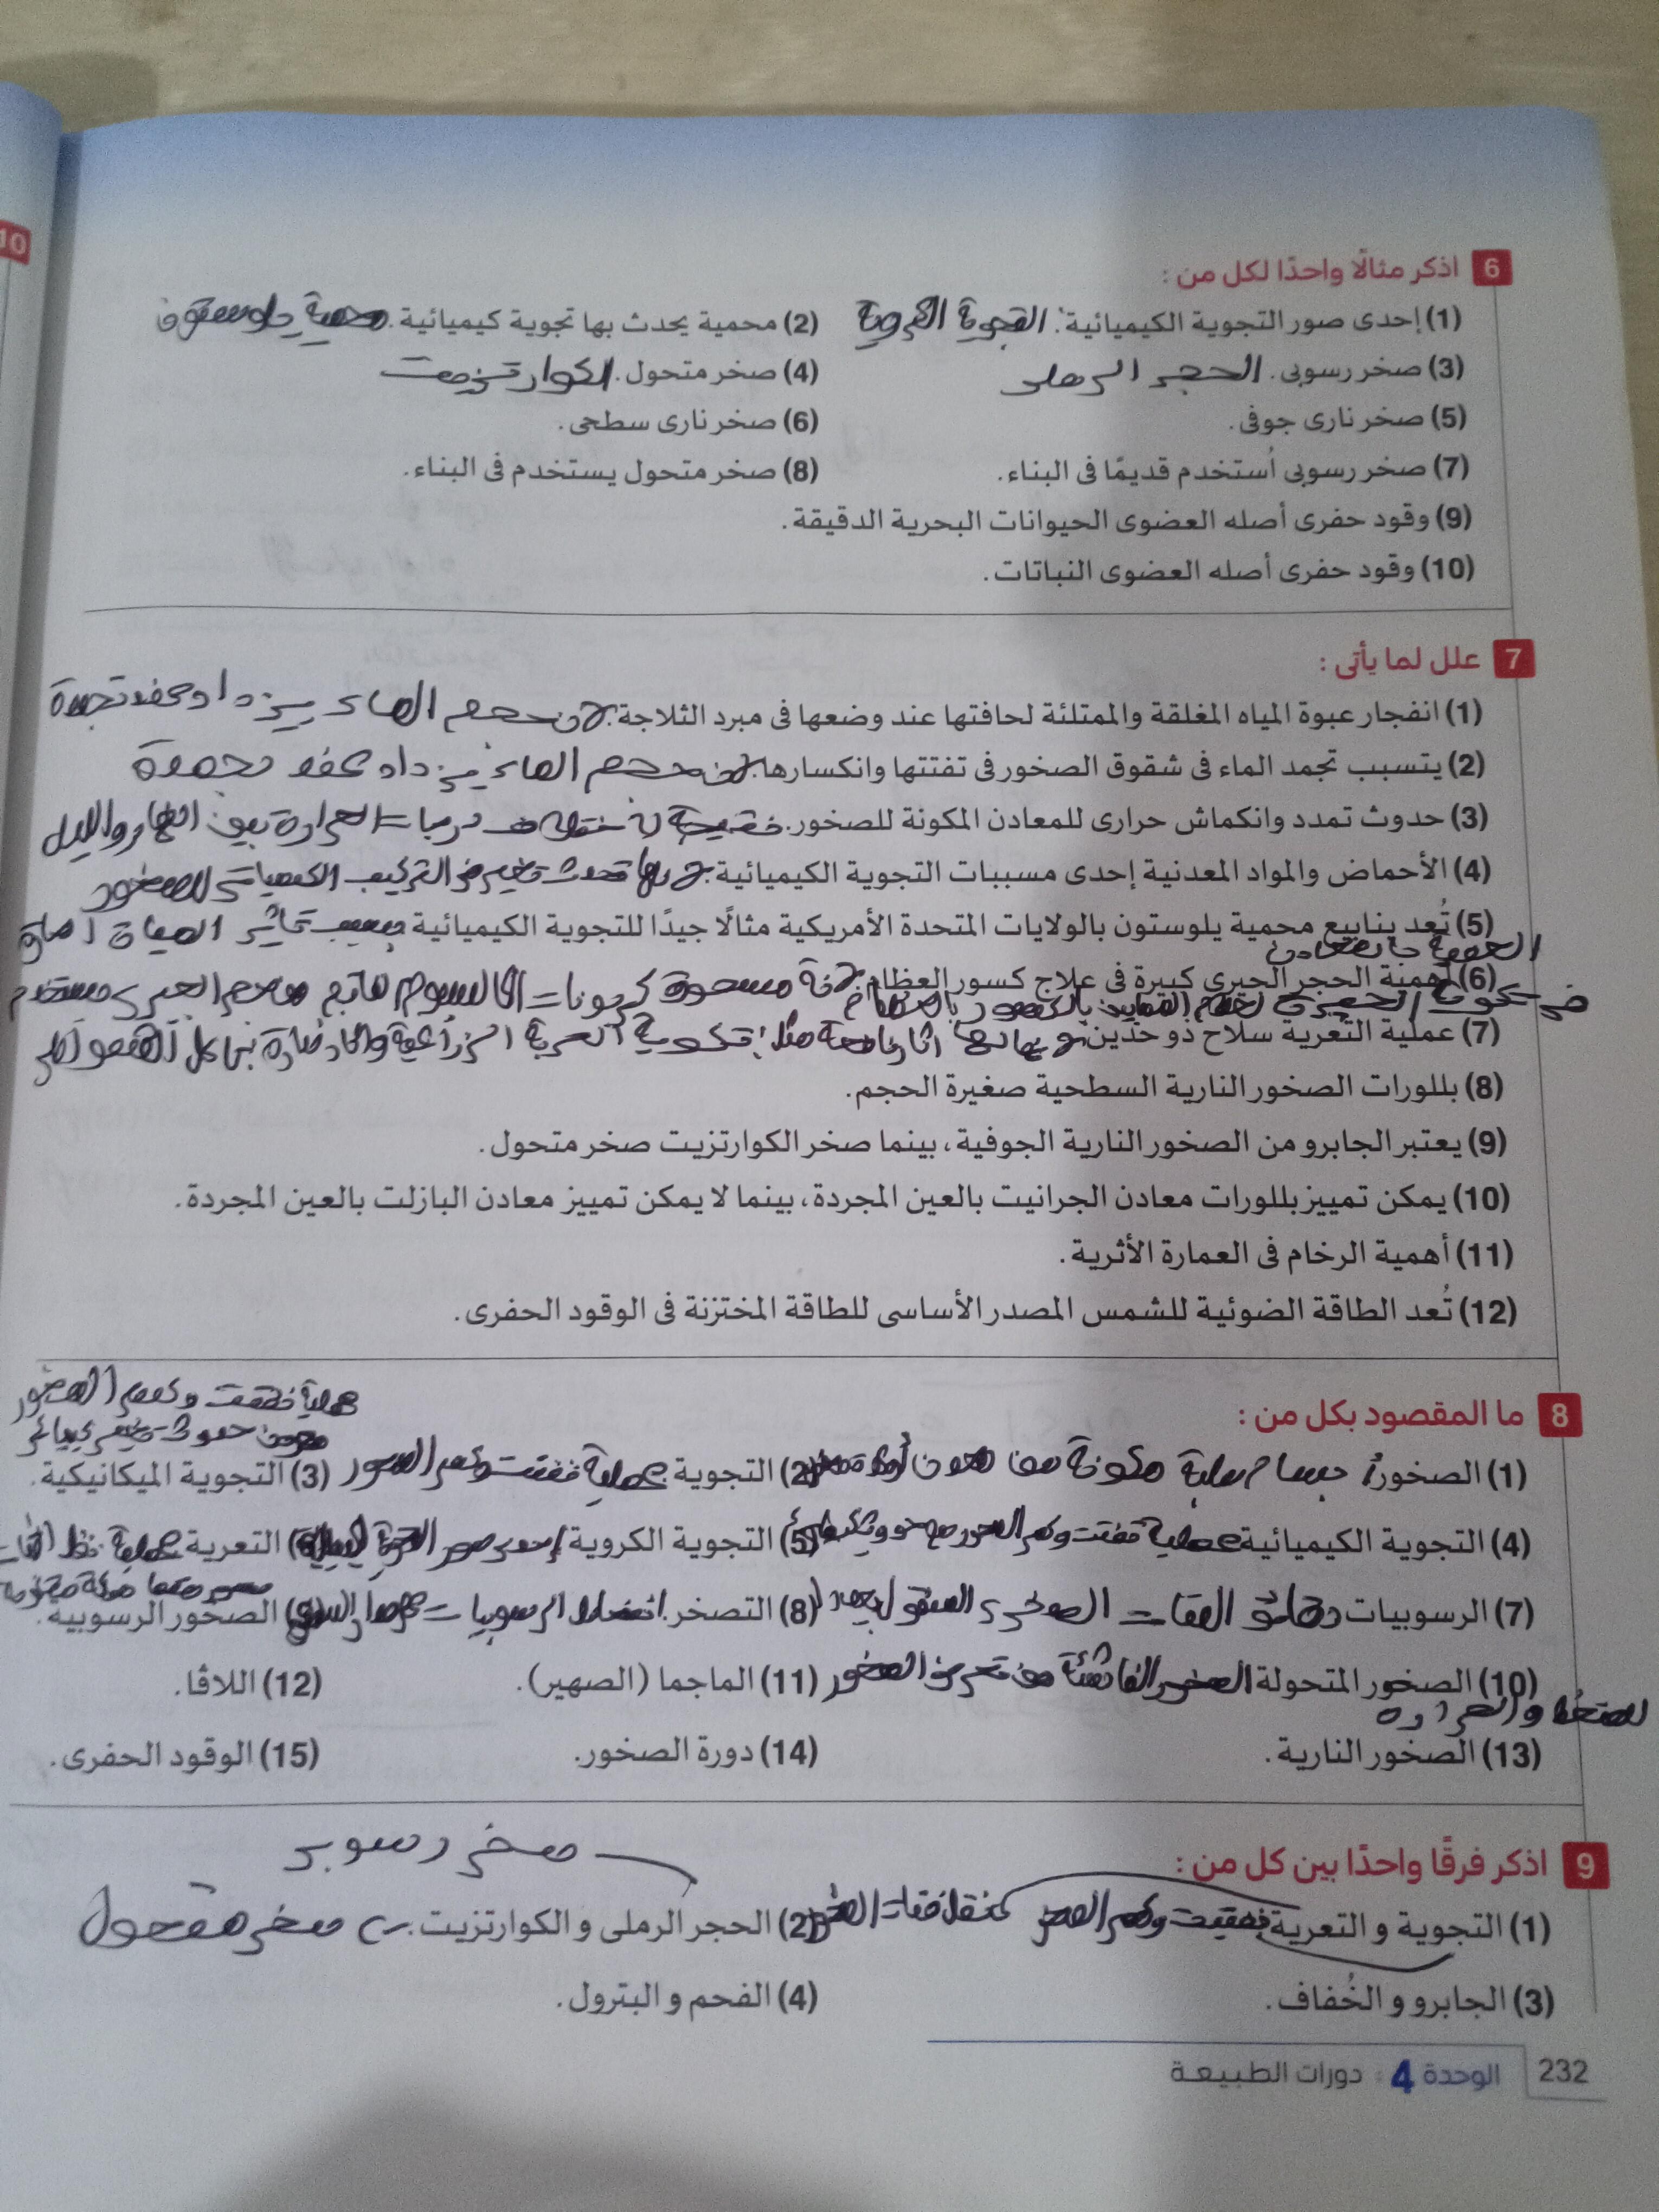 10
6 اذكر مثالًا واحدًا لكل من :
(1) إحدى صور التجوية الكيميائية. التجوية الكروية (2) محمية يحدث بها تجوية كيميائية. محمية يلوستون
(3) صخر رسوبى. الحجر الرملى (4) صخر متحول. الكوارتزيت
(5) صخر نارى جوفى. (6) صخر نارى سطحى.
(7) صخر رسوبى اُستخدم قديمًا فى البناء. (8) صخر متحول يستخدم فى البناء.
(9) وقود حفرى أصله العضوى الحيوانات البحرية الدقيقة.
(10) وقود حفرى أصله العضوى النباتات.
7 علل لما يأتى :
(1) انفجار عبوة المياه المغلقة والممتلئة لحافتها عند وضعها فى مبرد الثلاجة. لان حجم الماء يزداد عند تجمدة
(2) يتسبب تجمد الماء فى شقوق الصخور فى تفتتها وانكسارها. لان حجم الماء يزداد عند تجمدة
(3) حدوث تمدد وانكماش حرارى للمعادن المكونة للصخور. نتيجة لاختلاف درجات الحرارة بين النهار والليل
(4) الأحماض والمواد المعدنية إحدى مسببات التجوية الكيميائية. لانها تحدث تغير فى التركيب الكيميائى للصخور
(5) تُعد ينابيع محمية يلوستون بالولايات المتحدة الأمريكية مثالًا جيدًا للتجوية الكيميائية بسبب تأثير المياة
(6) أهمية الحجر الجيرى كبيرة فى علاج كسور العظام. مسحوق كربونات الكالسيوم
(7) عملية التعرية سلاح ذو حدين. التربة الزراعية
(8) بللورات الصخور النارية السطحية صغيرة الحجم.
(9) يعتبر الجابرو من الصخور النارية الجوفية، بينما صخر الكوارتزيت صخر متحول.
(10) يمكن تمييز بللورات معادن الجرانيت بالعين المجردة، بينما لا يمكن تمييز معادن البازلت بالعين المجردة.
(11) أهمية الرخام فى العمارة الأثرية.
(12) تُعد الطاقة الضوئية للشمس المصدر الأساسى للطاقة المختزنة فى الوقود الحفرى.
8 ما المقصود بكل من :
عملية تفتت وكسر الصخور
(1) الصخور. مكونة من معدن (2) التجوية. عملية تفتت وكسر الصخور (3) التجوية الميكانيكية.
(4) التجوية الكيميائية عملية تفتت وكسر الصخور (5) التجوية الكروية (6) التعرية عملية نقل
(7) الرسوبيات دقائق الفتات الصخرى المنقول (8) التصخر. الرسوبيات (9) الصخور الرسوبية.
(10) الصخور المتحولة الصخور الناشئة من تعرض الصخور (11) الماجما (الصهير). (12) اللاڤا.
للضغط والحرارة
(13) الصخور النارية. (14) دورة الصخور. (15) الوقود الحفرى.
9 اذكر فرقًا واحدًا بين كل من :
صخر رسوبى
(1) التجوية و التعرية تفتيت وكسر الصخر (2) الحجر الرملى و الكوارتزيت. صخر متحول
(3) الجابرو و الخُفاف. (4) الفحم و البترول.
232 الوحدة 4 : دورات الطبيعـة